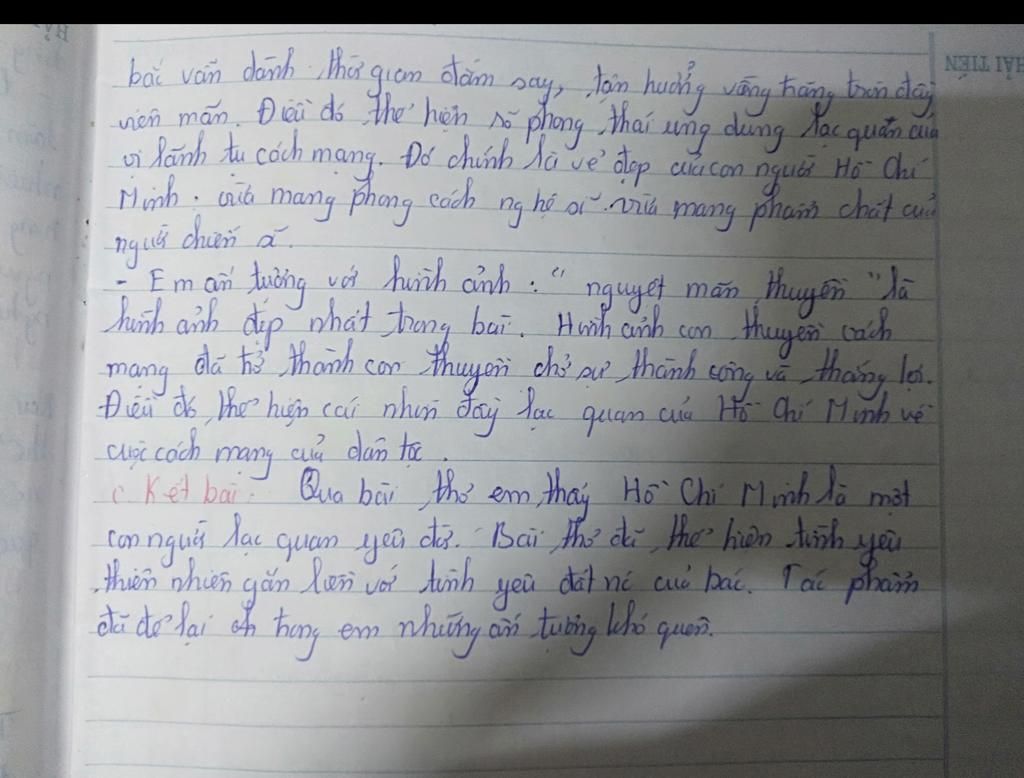 bác vẫn dành thời gian đắm say, tận hưởng vầng trăng tròn đầy
viên mãn. Điều đó thể hiện rõ phong thái ung dung lạc quan của
vị lãnh tụ cách mạng. Đó chính là vẻ đẹp của con người Hồ Chí
Minh. vừa mang phong cách nghệ sĩ vừa mang phẩm chất của
người chiến sĩ.
- Em ấn tượng với hình ảnh: "nguyệt mãn thuyền" là
hình ảnh đẹp nhất trong bài. Hình ảnh con thuyền cách
mạng đã trở thành con thuyền chở sự thành công và thắng lợi.
Điều đó thể hiện cái nhìn đầy lạc quan của Hồ Chí Minh về
cuộc cách mạng của dân tộc.
c. Kết bài: Qua bài thơ em thấy Hồ Chí Minh là một
con người lạc quan yêu đời. Bài thơ đã thể hiện tình yêu
thiên nhiên gắn liền với tình yêu đất nc của bác. Tác phẩm
đã để lại trong em những ấn tượng khó quên.
HẢI TIẾN